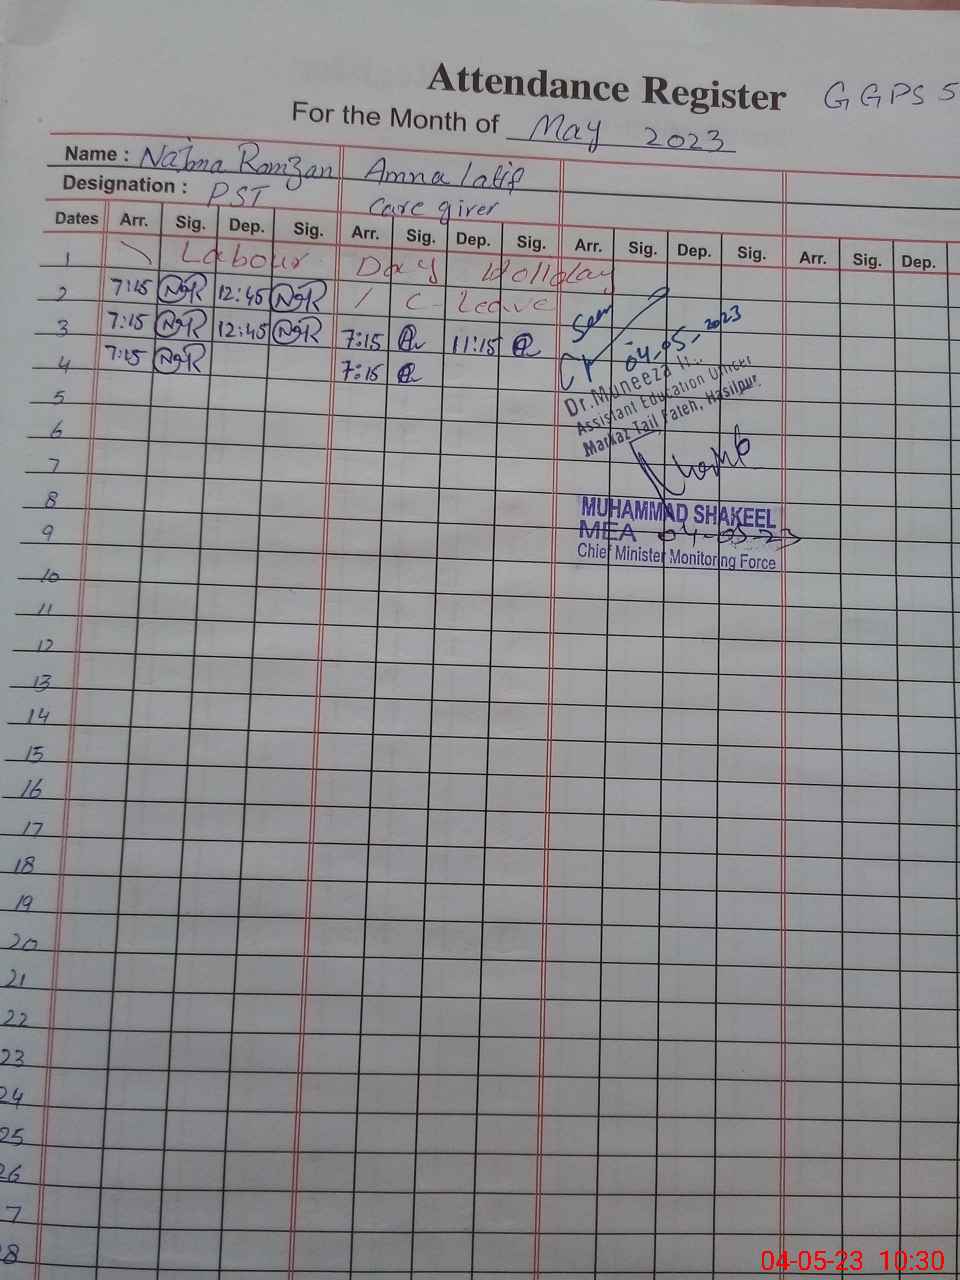 Attendance Register GGPS 5
For the Month of May 2023
Name : Najma Ramzan Amna latif
Designation : PST Care giver
Dates Arr. Sig. Dep. Sig. Arr. Sig. Dep. Sig. Arr. Sig. Dep. Sig. Arr. Sig. Dep.
1 Labour Day Holiday
2 7:15 NR 12:45 NR / C-Leave
3 7:15 NR 12:45 NR 7:15 11:15
4 7:15 NR 7:15
Seen
04-05-2023
Dr. Muneeza
Assistant Education Officer
Markaz Tail Fateh, Hasilpur
5
6
7
8
MUHAMMAD SHAKEEL
9
MEA 04-05-23
Chief Minister Monitoring Force
10
11
12
13
14
15
16
17
18
19
20
21
22
23
24
25
26
7
8
04-05-23 10:30